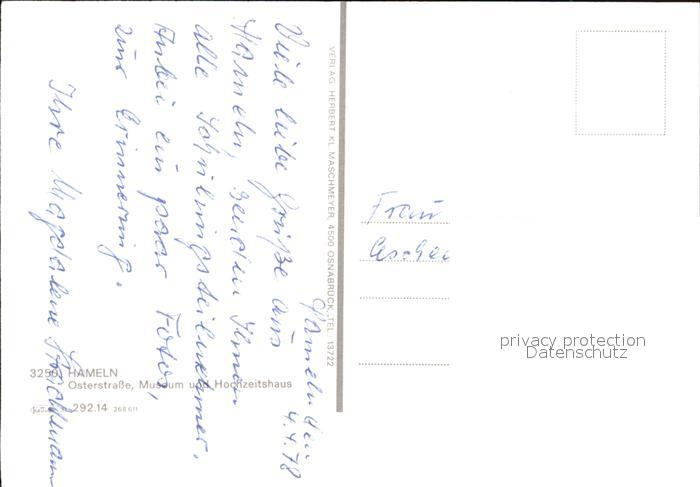 Hameln den
4.4.78
Viele liebe Grüße aus
Hameln, senden Ihnen
alle Schulungsteilnehmer,
Anbei ein paar Fotos,
zur Erinnerung.
Ihre Magdalene
Frau
VERLAG HERBERT KL. MASCHMEYER, 4500 OSNABRÜCK, TEL. 13722
3250 HAMELN
Osterstraße, Museum und Hochzeitshaus
292.14 268611
privacy protection
Datenschutz